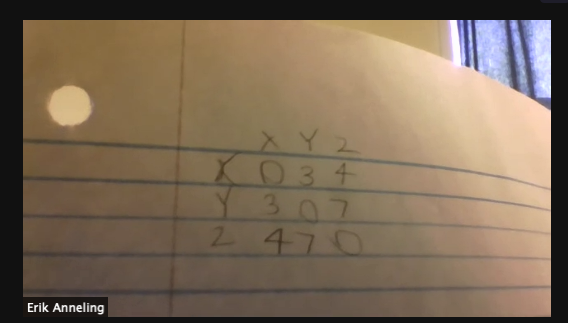 X Y Z
X 0 3 4
Y 3 0 7
Z 4 7 0
Erik Anneling